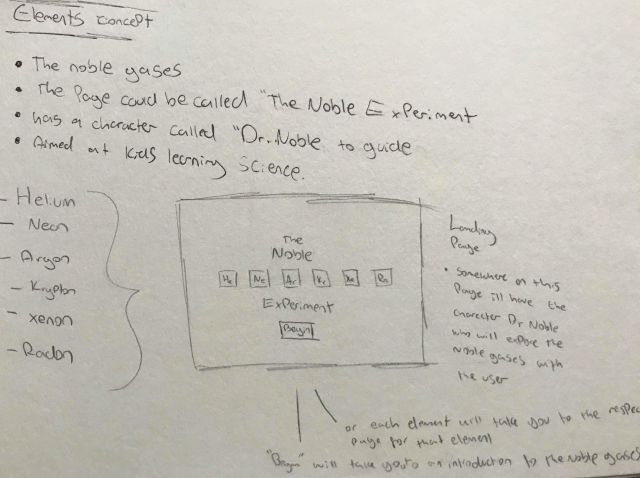 Elements concept
• The noble gases
• The Page could be called "The Noble ExPeriment
• has a character called "Dr. Noble to guide
• Aimed at Kids learning Science.
- Helium
- Neon
- Argon
- Krypton
- xenon
- Radon
The
Noble
He Ne Ar Kr Xe Rn
ExPeriment
Begin
Landing
Page
• somewhere on this
Page ill have the
character Dr Noble
who will exPore the
Noble gases with
the user
or each element will take you to the respec
page for that element
"Begin" will take you to an introduction to the Noble gases